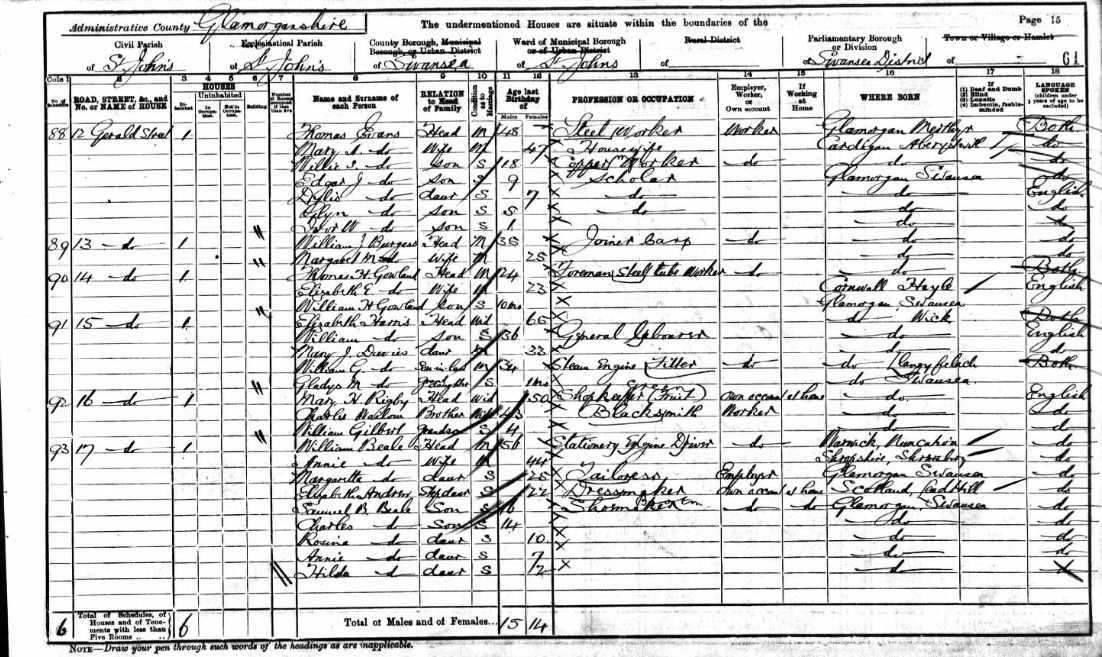 Administrative County Glamorganshire
The undermentioned Houses are situate within the boundaries of the
Page 15
Civil Parish of St Johns
Ecclesiastical Parish of St Johns
County Borough, Municipal Borough, or Urban District of Swansea
Ward of Municipal Borough or of Urban District of St Johns
Rural District of
Parliamentary Borough or Division of Swansea District
Town or Village or Hamlet of
61
Cols 1 2 3 4 5 6 7 8 9 10 11 12 13 14 15 16 17 18
ROAD, STREET, &c., and No. or NAME of HOUSE
HOUSES
Uninhabited
Building
Name and Surname of each Person
RELATION to Head of Family
Condition as to Marriage
Age last Birthday of
Males Females
PROFESSION OR OCCUPATION
Employer, Worker, or Own account
If Working at Home
WHERE BORN
If (1) Deaf and Dumb (2) Blind (3) Lunatic (4) Imbecile, feeble-minded
LANGUAGE SPOKEN
88 12 Gerald Street 1 Thomas Evans Head M 48 Steel Worker Worker Glamorgan Merthyr Both
Mary do Wife M 47 Housewife Cardigan do
do son S 18 Copper Worker do do do
Edgar J do son S 9 Scholar Glamorgan Swansea do
do daur S 7 do do English
Glyn do son S 5 do do do
Ivor W do son S 1 do
89 13 do 1 William J Burgess Head M 35 Joiner Carp do do do
Margaret do Wife M 25 do do
90 14 do 1 Thomas H Gowland Head M 24 Foreman Steel tube Worker do do Both
Elizabeth E do Wife M 23 Cornwall Hayle English
William H Gowland Son S 10 mo Glamorgan Swansea
91 15 do 1 Elizabeth Harris Head Wid 66 do Wick Both
William do son S 36 General Labourer do English
Mary J. Davies daur M 33 do do
William G. do Son in law M 34 Steam Engine Fitter do do Llangyfelach Both
Gladys M do S 1 mo do Swansea
92 16 do 1 Mary H Rigby Head Wid 50 Shopkeeper (Fruit) own account at home do English
Charles Brother Blacksmith Worker do do
William Gilbert Grandson S 4 do do
93 17 do 1 William Beale Head M 56 Stationery Engine Driver do Warwick, do
Annie do Wife M 44 Shropshire, do
Margaretta do daur S 25 Tailoress Employer Glamorgan Swansea do
Elizabeth Andrew Step daur S 22 Dressmaker own account at home Scotland, do
Samuel B. Beale Son S 16 do do Glamorgan, Swansea do
Charles do Son S 14 do do
Rosina do daur S 10 do do
Annie do daur S 7 do do
Hilda do daur S 2 do
6 Total of Schedules, of Houses and of Tenements with less than Five Rooms 6
Total of Males and of Females... 15 14
NOTE—Draw your pen through such words of the headings as are inapplicable.